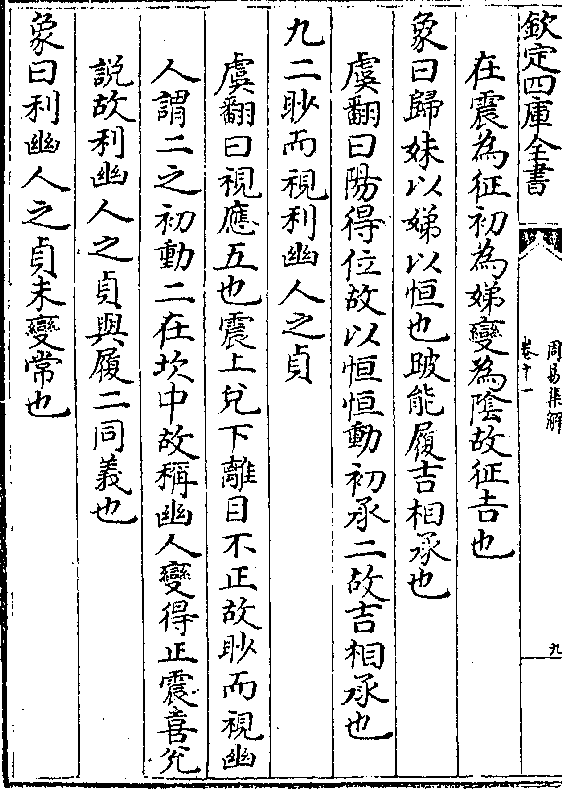 欽定四庫全書
周易集解
卷十一
九
在震為征初為娣變為隂故征吉也
象曰歸妹以娣以恒也跛能履吉相承也
虞翻曰陽得位故以恒恒動初承二故吉相承也
九二眇而視利幽人之貞
虞翻曰視應五也震上兌下離目不正故眇而視幽
人謂二之初動二在坎中故稱幽人變得正震喜兌
說故利幽人之貞與履二同義也
象曰利幽人之貞未變常也